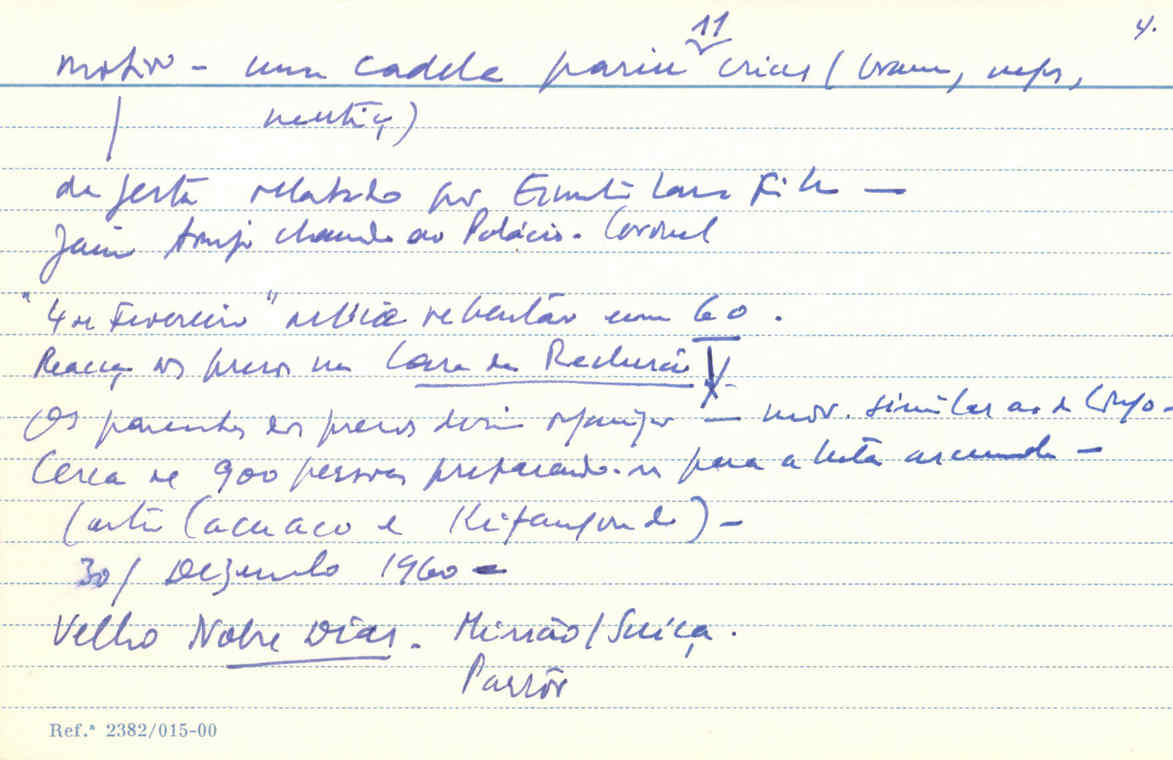 4.
motivo - uma cadela pariu 11 crias (brancas, negras,
mestiças)
da festa relatado por Ernesto Lara Filho —
Jaime Araújo chamado ao Palácio. Coronel
"4 de Fevereiro" notícia rebentão em 60.
Reacção dos presos na Casa de Reclusão
Os parentes dos presos deviam organizar — mov. similar ao do Congo -
Cerca de 900 pessoas preparando-se para a luta armada -
(entre Cacuaco e Kifangondo) -
30/ Dezembro 1960 -
Velho Nobre Dias. Missão/Suíça.
Pastor
Ref.ª 2382/015-00